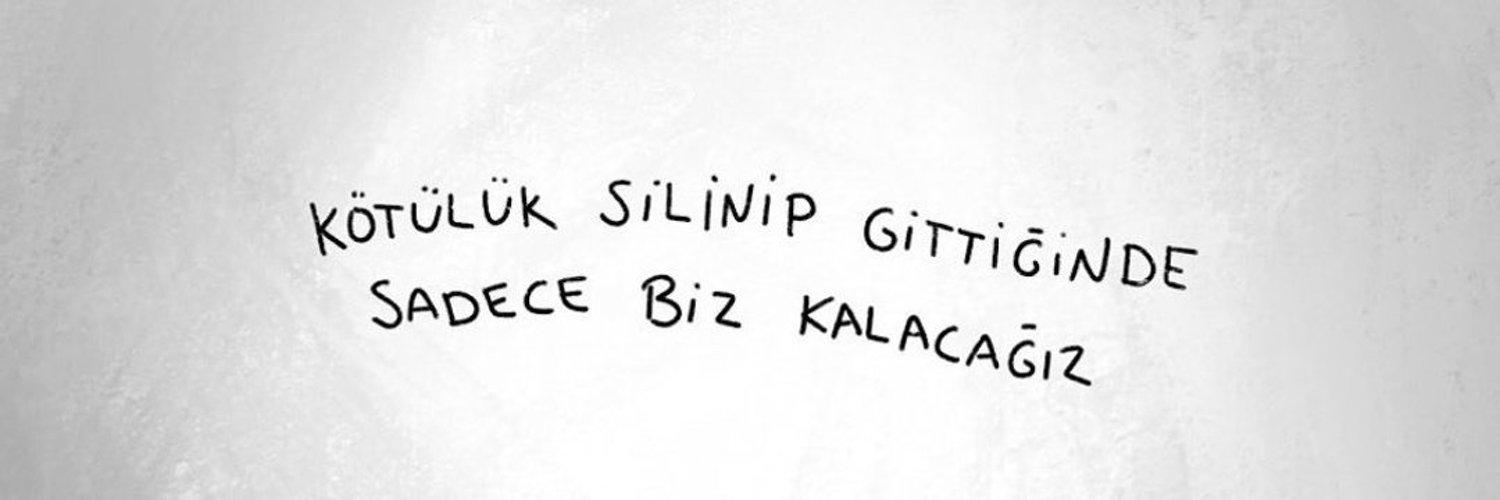 KÖTÜLÜK SİLİNİP GİTTİĞİNDE
SADECE BİZ KALACAĞIZ